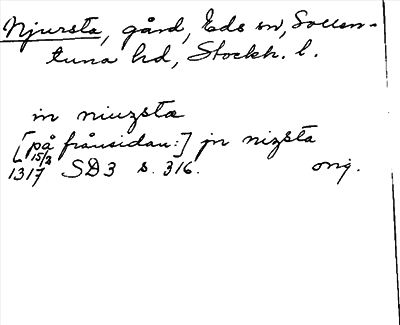 Njursta, gård, Eds sn, Sollen-
tuna hd, Stockh. l.
in niuzsta
[på frånsidan:] jn nizsta
15/3
1317 SD 3 s. 316. orig.